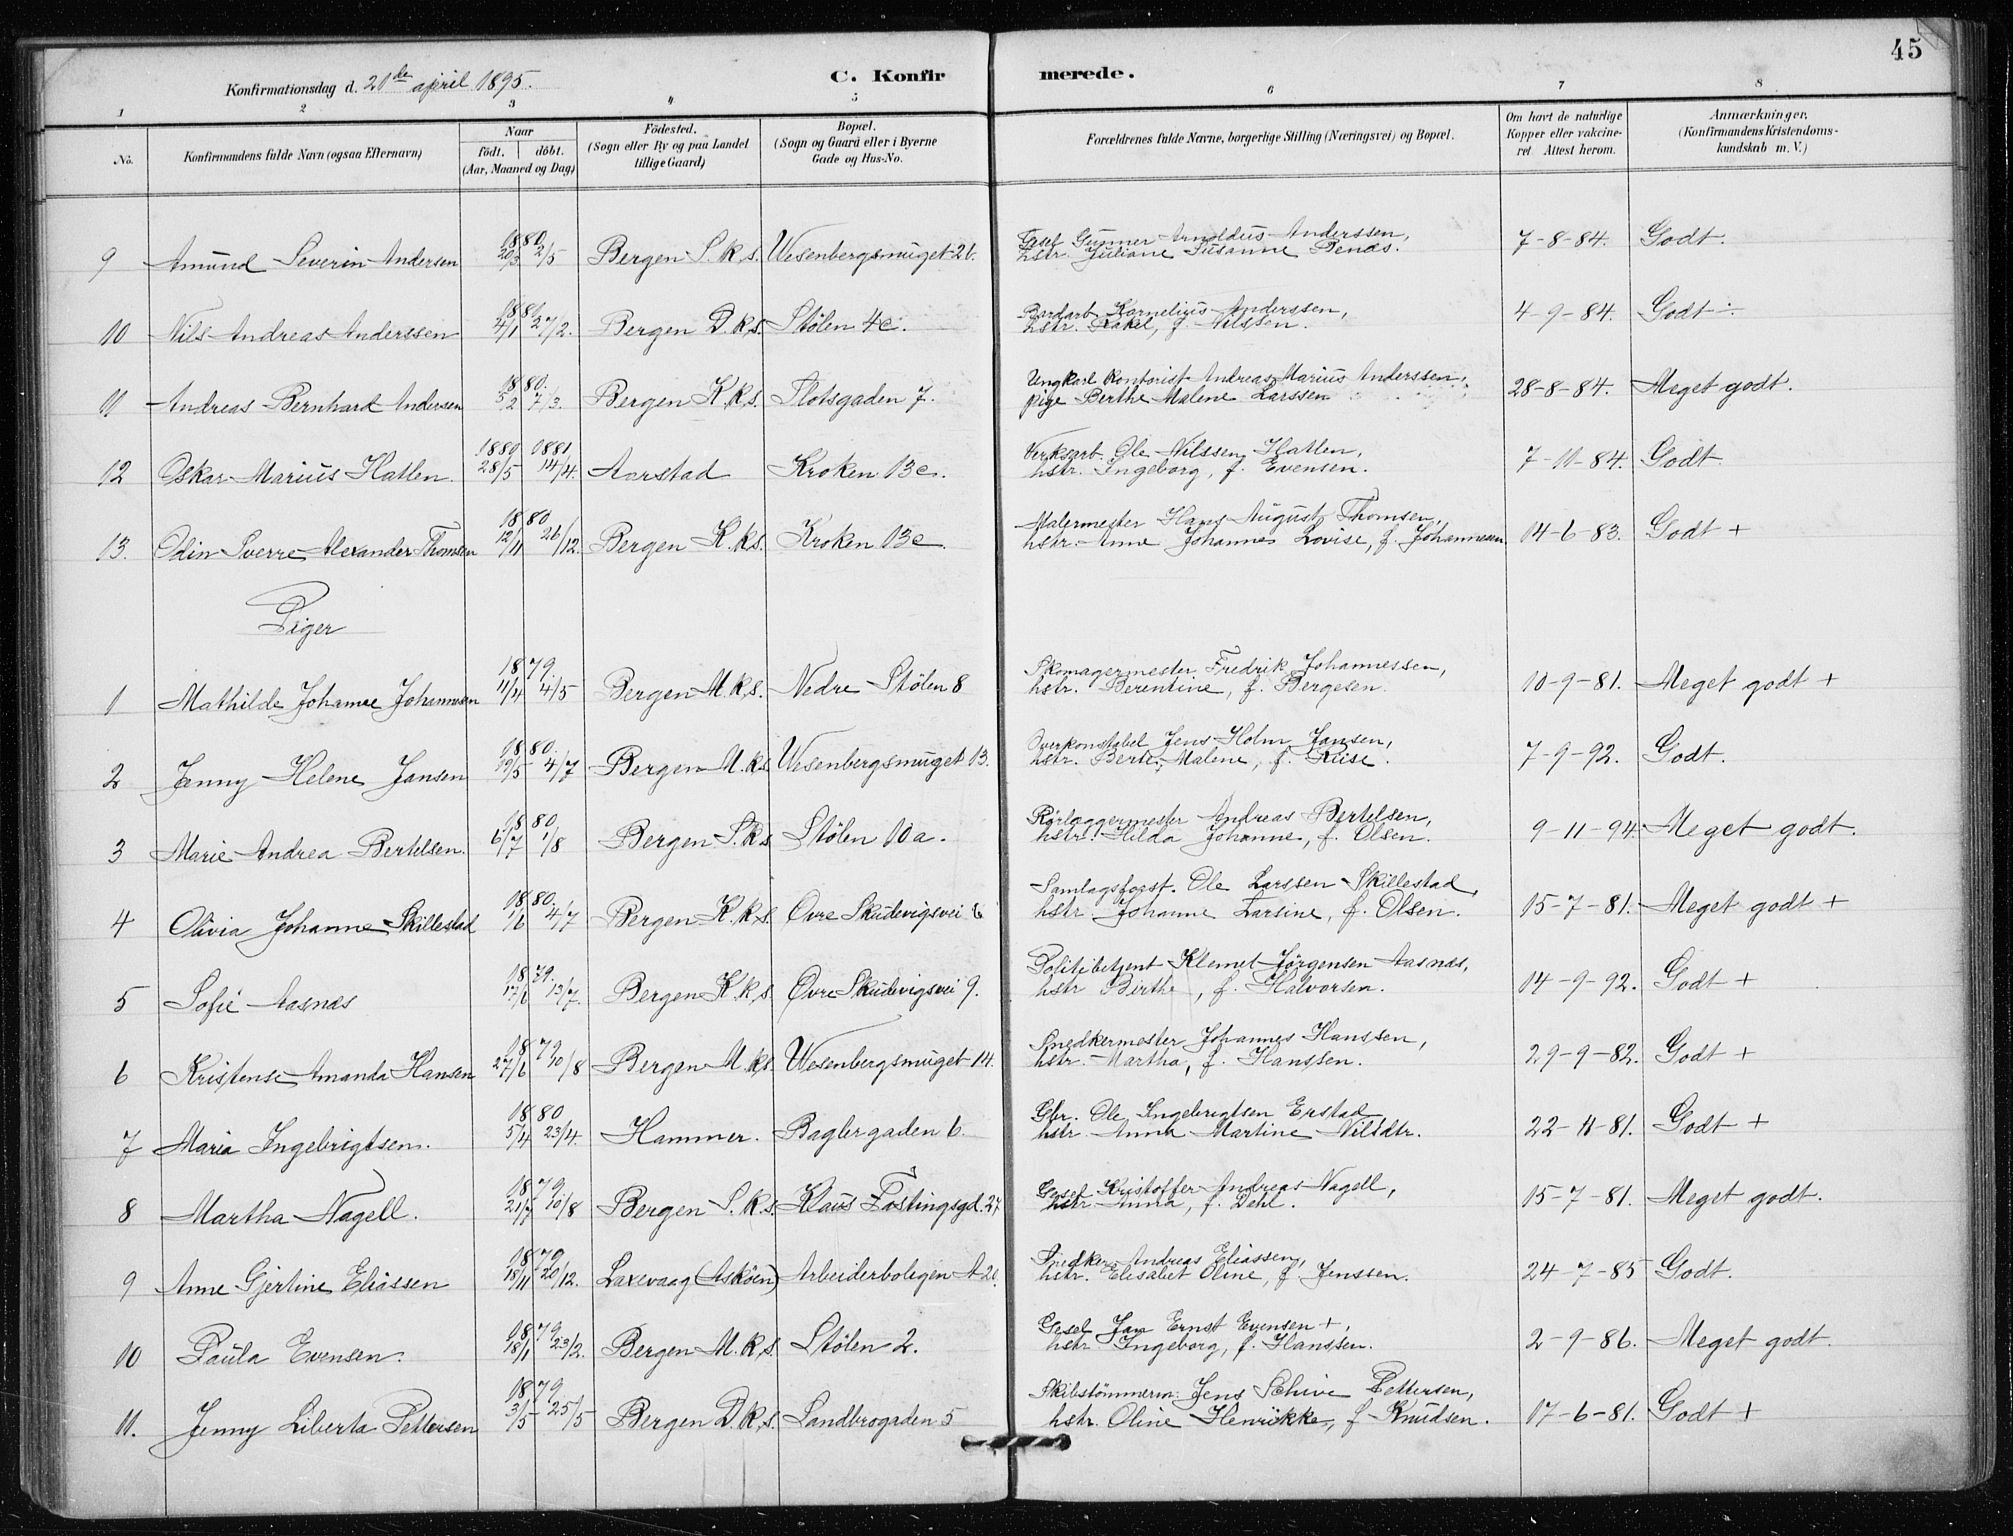 45
Konfirmationsdag d. 21de april 1895. C. Konfirmerede.
1 2 3 4 5 6 7 8
No. Konfirmandens fulde Navn (ogsaa Efternavn) Naar födt. döbt. (Aar, Maaned og Dag) Födested. (Sogn eller By og paa Landet tillige Gaard) Bopæl. (Sogn og Gaard eller i Byerne Gade og Hus-No. Forældrenes fulde Navne, borgerlige Stilling (Næringsvei) og Bopæl. Om havt de naturlige Kopper eller vakcineret Attest herom. Anmærkninger, (Konfirmandens Kristendomskundskab m. V.)
9 Amund Severin Andersen 1880 20/3 2/5 Bergen S. k. s. Wesenbergsmuget 26. Gesel Gunner Arnoldus Anderssen, hstr. Juliane Susanne Benas. 7-8-84. Godt.
10 Nils Andreas Anderssen 1881 4/1 27/2. Bergen D. k. s. Stølen 4c. Bordarb. Kornelius Anderssen, hstr. Rakel, f. Nilssen. 4-9-84. Godt ÷
11 Andreas Bernhard Andersen 1880. 5/2 7/3. Bergen K. k. s. Slotsgaden 7. Ungkarl Kontorist Andreas Marius Anderssen, pige Berthe Malene Larssen 28-8-84. Meget godt.
12 Oskar Marius Hatlen. 1880 28/5 1881 14/4. Aarstad Kroken 13c. Verksarb. Ole Nilssen Hatlen, hstr. Ingeborg, f. Evensen. 7-11-84. Godt
13. Odin Sverre Alexander Thomsen 1880 12/11 26/12. Bergen K. k. s. Kroken 13c. Malermester Hans August Thomsen, hstr. Anne Johannes Lovise, f. Johannesen 14-6-83. Godt +
Piger
1 Mathilde Johanne Johannesen 1879 11/4 4/5 Bergen M. k. s. Nedre Stølen 8 Skomagermester Fredrik Johannessen, hstr. Berentine, f. Bergesen. 10-9-81. Meget godt +
2 Jenny Helene Jansen 1880. 19/5 4/7 Bergen M. k. s Wesenbergsmuget 13. Overkonstabel Jens Holm Jansen, hstr. Berte Malene, f. Riise. 7-9-92. Godt.
3 Marie Andrea Bertelsen. 1880. 6/7 1/8 Bergen S. k. s Stølen 10a. Rørlæggermester Andreas Bertelsen, hstr. Hilda Johanne, f. Olsen. 9-11-94 Meget godt.
4 Olivia Johanne Skillestad 1880. 1/6 4/7 Bergen K. k. s. Øvre Skudevigsvei 6 Samlagsforst. Ole Larssen Skillestad, hstr Johanne Larsine, f. Olsen. 15-7-81. Meget godt +
5 Sofie Aasnæs 1879. 17/6 13/7. Bergen K. k. s Øvre Skudevigsvei 9. Politibetjent Klemet Jørgensen Aasnæs, hstr Birthe, f. Halvorsen. 14-9-92. Godt +
6 Kristense Amanda Hansen 1879 27/6 10/8 Bergen M. k. s. Wesenbergsmuget 14. Snedkermester Johannes Hanssen, hstr. Martha, f. Hanssen. 29-9-82. Godt +
7 Maria Ingebrigtsen. 1880 5/4 23/4. Hammer. Baglergaden 6. Gbr. Ole Ingebrigtsen Erstad hstr. Anna Martine Nilsdtr. 22-11-81. Godt +
8 Martha Nagell. 1879 21/7 10/8 Bergen S. k. s. Klaus Fastingsgd. 27 Gesel Kristoffer Andreas Nagell, hstr Anna, f. Dehl. 15-7-81. Meget godt.
9 Anne Gjertine Eliassen 1879 18/11 20/12. Laxevaag (Askøen) Arbeiderboligen A 20. Snedker Andreas Eliassen, hstr. Elisabet Oline, f Jenssen. 24-7-85 Godt.
10 Paula Evensen. 1879 18/1 23/2. Bergen M. k. s. Stølen 2. Gesel Jan Ernst Evensen +, hstr Ingeborg, f. Hanssen. 2-9-86. Meget godt.
11. Jenny Liberta Pettersen 1879 3/5 25/5 Bergen D. k. s. Sandbrogaden 5 Skibstømmerm. Jens Schive Pettersen, hstr. Oline Henrikke, f Knudsen. 17-6-81. Godt +